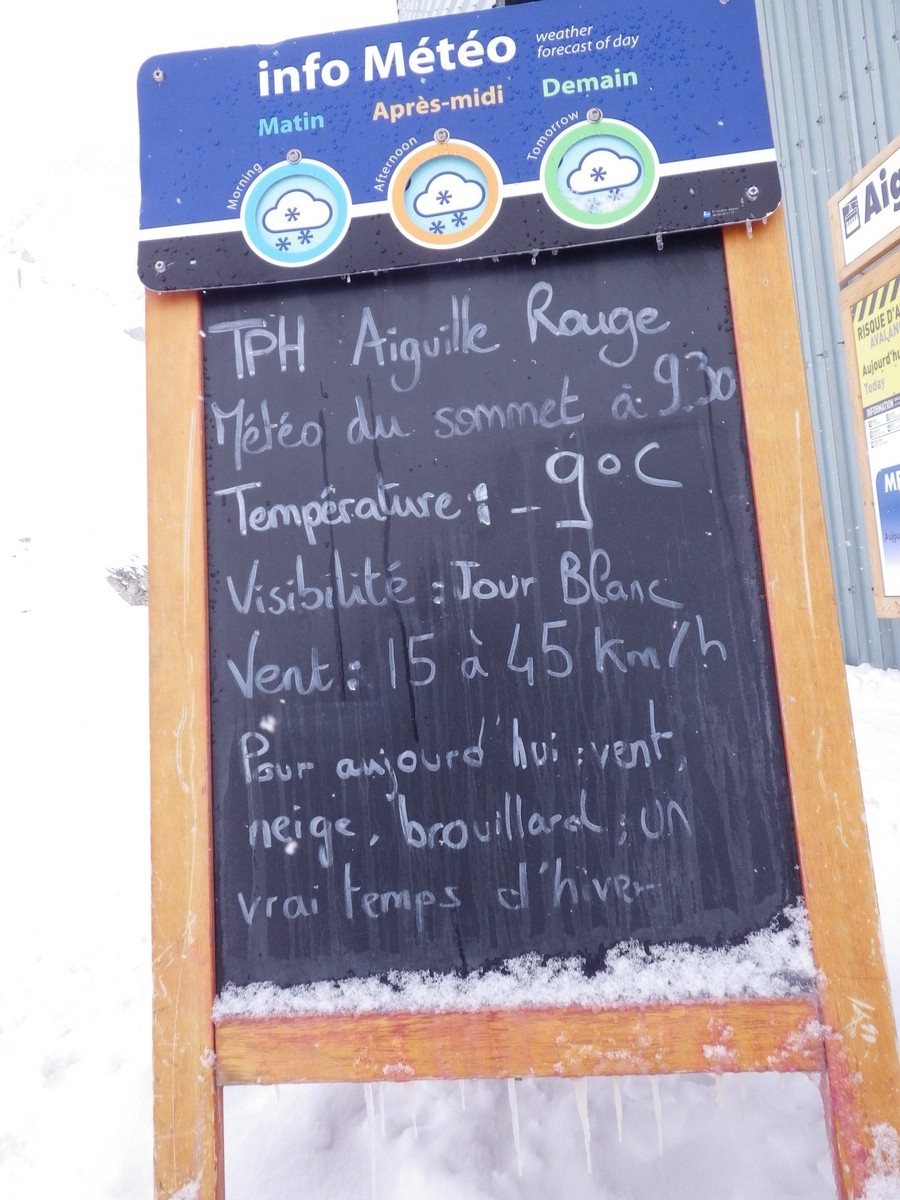 info Météo
weather
forecast of day
Matin
Après-midi
Demain
Morning
Afternoon
Tomorrow
TPH Aiguille Rouge
Météo du sommet à 9.30
Température : - 9°C
Visibilité : Jour Blanc
Vent : 15 à 45 km/h
Pour aujourd'hui : vent,
neige, brouillard, un
vrai temps d'hiver
Aig
RISQUE D'A
AVALAN
Aujourd'hu
Today
INFORMATION
ME